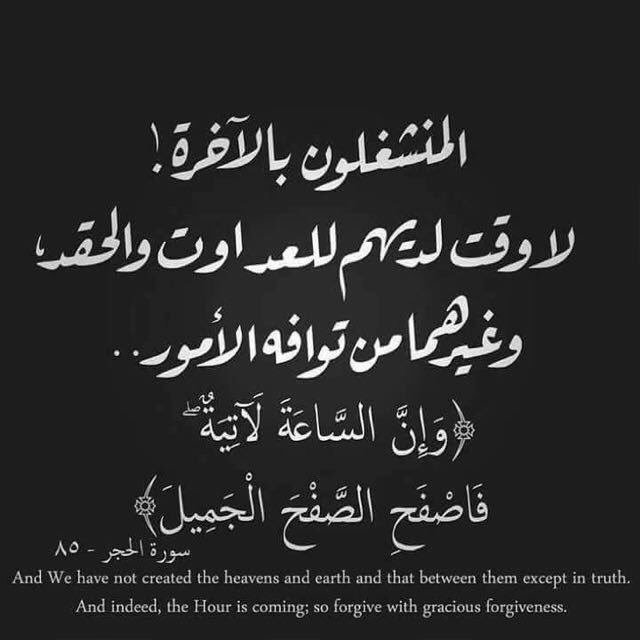 المنشغلون بالآخرة!
لا وقت لديهم للعداوت والحقد،
وغيرهما من توافه الأمور..
﴿وَإِنَّ السَّاعَةَ لَآتِيَةٌ ۖ
فَاصْفَحِ الصَّفْحَ الْجَمِيلَ﴾
سورة الحجر - ٨٥
And We have not created the heavens and earth and that between them except in truth.
And indeed, the Hour is coming; so forgive with gracious forgiveness.